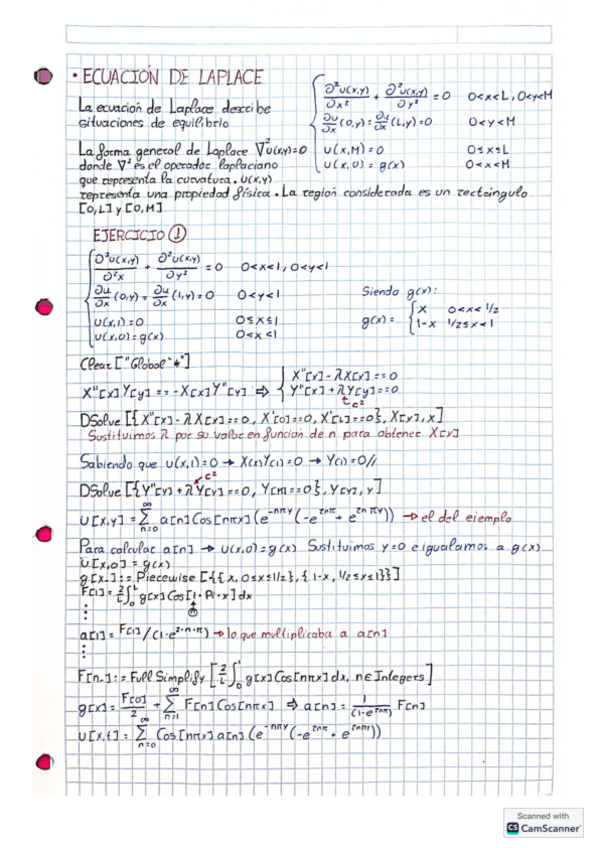 • ECUACIÓN DE LAPLACE
∂²u(x,y)/∂x² + ∂²u(x,y)/∂y² = 0   0<x<L, 0<y<M
∂u/∂x (0,y) = ∂u/∂x (L,y) = 0   0<y<M
u(x,M) = 0   0≤x≤L
u(x,0) = g(x)   0<x<M
La ecuación de Laplace describe
situaciones de equilibrio
La forma general de Laplace ∇²u(x,y)=0
donde ∇² es el operador laplaciano
que representa la curvatura. u(x,y)
representa una propiedad física. La región considerada es un rectángulo
[0,L] y [0,M]
EJERCICIO ①
∂²u(x,y)/∂²x + ∂²u(x,y)/∂y² = 0   0<x<1, 0<y<1
∂u/∂x (0,y) = ∂u/∂x (1,y) = 0   0<y<1
u(x,1) = 0   0≤x≤1
u(x,0) = g(x)   0<x<1
Siendo g(x):
g(x) = { x   0<x<1/2
1-x   1/2≤x<1
Clear["Global`*"]
X''[x]Y[y] == -X[x]Y''[y] ⇒ { X''[x] - λX[x] == 0
Y''[y] + λY[y] == 0
c²
DSolve[{X''[x] - λX[x] == 0, X'[0] == 0, X'[L] == 0}, X[x], x]
Sustituimos λ por su valor en función de n para obtener X[x]
Sabiendo que u(x,1)=0 → X(x)Y(1)=0 → Y(1)=0//
c²
DSolve[{Y''[y] + λY[y] == 0, Y[M] == 0}, Y[y], y]
u[x,y] = ∑ n=0 ∞ a[n]Cos[nπx](e^-nπy(-e^2nπ + e^2nπy)) → el del ejemplo
Para calcular a[n] → u(x,0)=g(x) Sustituimos y=0 e igualamos a g(x)
u[x,0] = g(x)
g[x_] := Piecewise[{{x, 0≤x≤1/2}, {1-x, 1/2≤x≤1}}]
F[1] = 2/L ∫₀ᴸ g[x]Cos[1·Pi·x]dx
⋮
a[1] = F[1]/(1-e^2·n·π) → lo que multiplicaba a a[n]
⋮
F[n_] := FullSimplify[2/L ∫₀¹ g[x]Cos[nπx]dx, n∈Integers]
g[x] = F[0]/2 + ∑ n=1 ∞ F[n]Cos[nπx] ⇒ a[n] = 1/(1-e^2nπ) F[n]
u[x,t] = ∑ n=0 ∞ Cos[nπx]a[n](e^-nπy(-e^2nπ + e^2nπy))
Scanned with
CS CamScanner